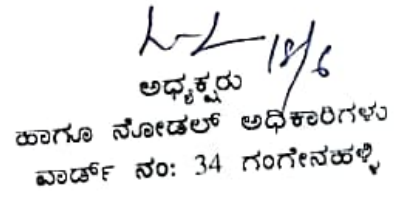 18/6
ಅಧ್ಯಕ್ಷರು
ಹಾಗೂ ನೋಡಲ್ ಅಧಿಕಾರಿಗಳು
ವಾರ್ಡ್ ನಂ: 34 ಗಂಗೇನಹಳ್ಳಿ